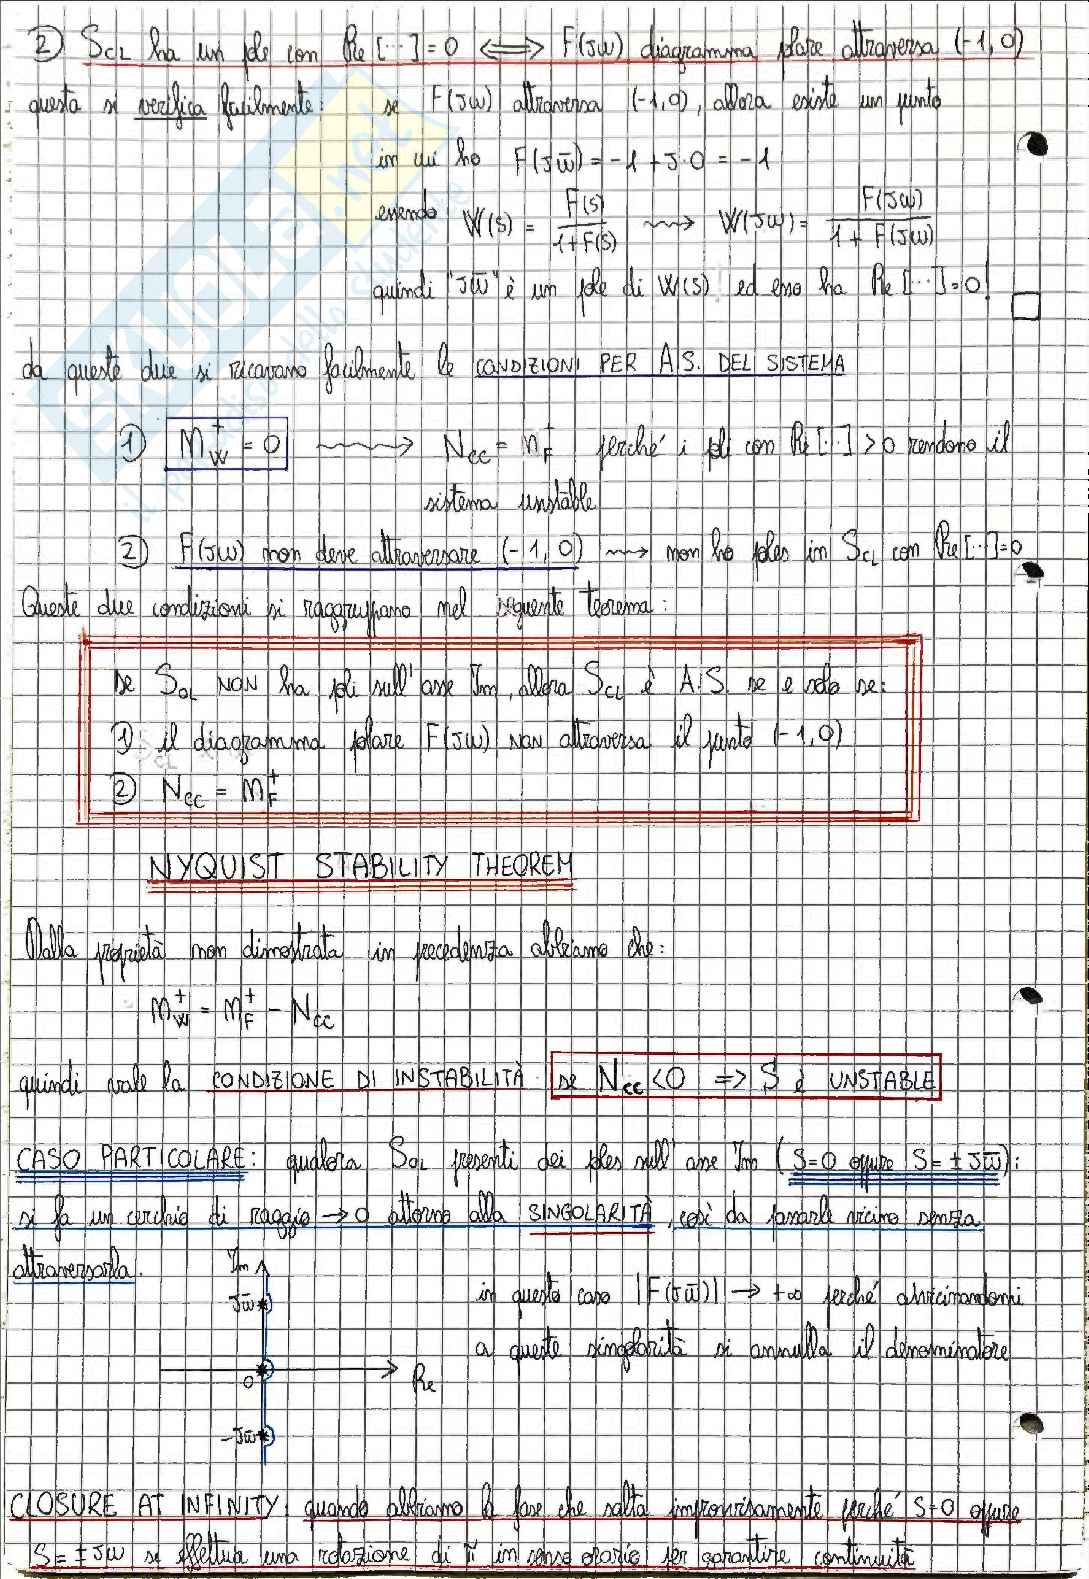 2) S_CL ha un pole con Re[...] = 0 ⟺ F(Jω) diagramma polare attraversa (-1,0)
questa si verifica facilmente: se F(Jω) attraversa (-1,0), allora esiste un punto
in cui ho F(Jω̄) = -1 + J·0 = -1
essendo W(s) = F(s)/(1+F(s)) ⇝ W(Jω) = F(Jω)/(1+F(Jω))
quindi "Jω̄" è un pole di W(s) ed esso ha Re[...] = 0!
da queste due si ricavano facilmente le CONDIZIONI PER A.S. DEL SISTEMA
1) m_W^+ = 0 ⇝ N_cc = m_F^+ perché i poli con Re[...] > 0 rendono il
sistema unstable
2) F(Jω) non deve attraversare (-1,0) ⇝ non ho poles in S_CL con Re[...] = 0
Queste due condizioni si raggruppano nel seguente teorema:
se S_OL NON ha poli sull'asse Im, allora S_CL è A.S. se e solo se:
1) il diagramma polare F(Jω) NON attraversa il punto (-1,0)
2) N_cc = m_F^+
NYQUIST STABILITY THEOREM
Dalla proprietà non dimostrata in precedenza abbiamo che:
m_W^+ = m_F^+ - N_cc
quindi vale la CONDIZIONE DI INSTABILITÀ: se N_cc < 0 => S è UNSTABLE
CASO PARTICOLARE: qualora S_OL presenti dei poles sull'asse Im (S=0 oppure S=±Jω̄):
si fa un cerchio di raggio → 0 attorno alla SINGOLARITÀ, così da passarle vicino senza
attraversarla.
Im
Jω̄
in questo caso |F(Jω̄)| → +∞ perché avvicinandomi
a queste singolarità si annulla il denominatore
0
Re
-Jω̄
CLOSURE AT INFINITY: quando abbiamo la fase che salta improvvisamente perché S=0 oppure
S=±Jω si effettua una rotazione di π in senso orario per garantire continuità
SKUOLA.net
il paradiso dello studente